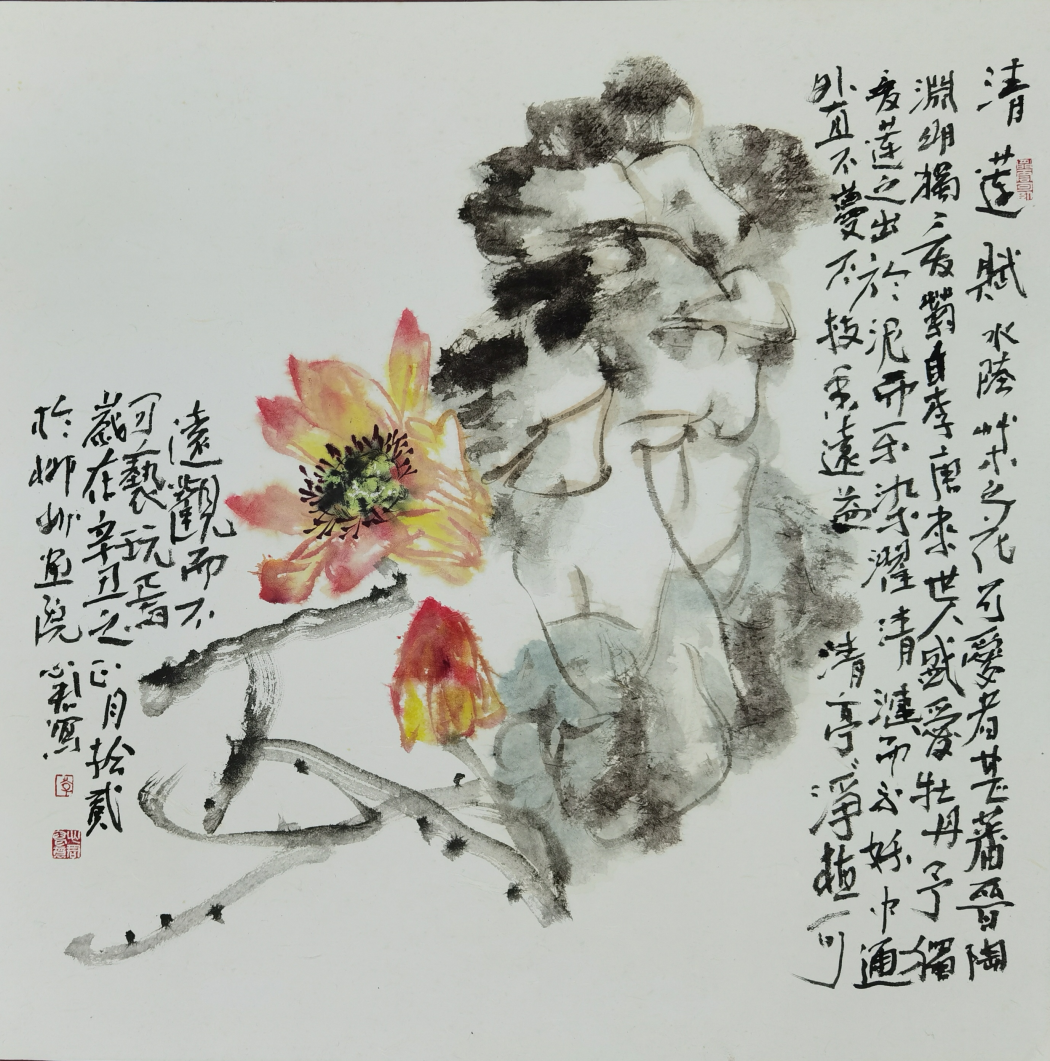 清莲赋 水陸草木之花可愛者甚蕃晋陶
淵明獨〻爱菊自李唐来世人盛爱牡丹予獨
爱莲之出於泥而不染濯清漣而不妖中通
外直不蔓不枝香遠益清亭〻淨植可
遠觀而不
可褻玩焉
歲在辛丑之正月拾貳
於柳州画院 寫